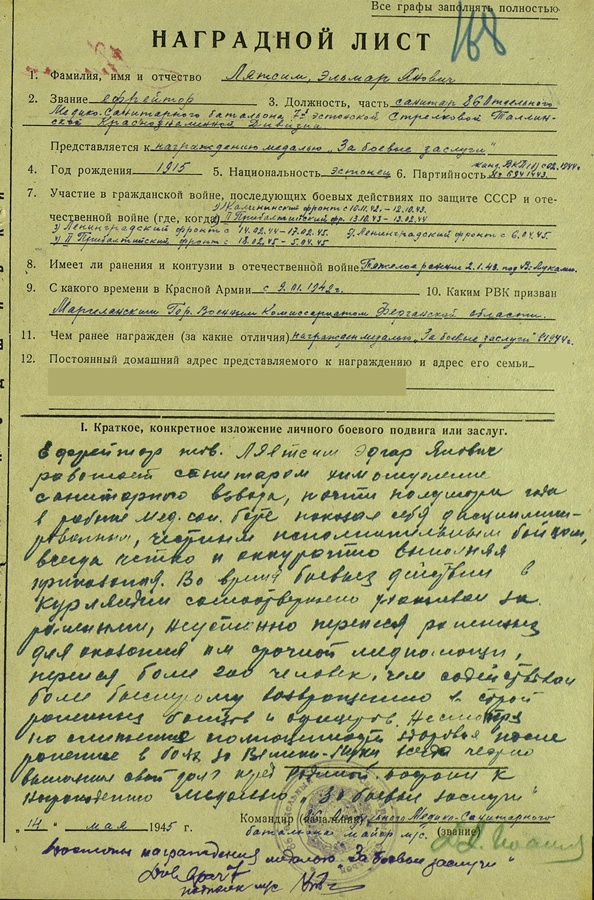 Все графы заполнять полностью
168
НАГРАДНОЙ ЛИСТ
1. Фамилия, имя и отчество Лятсим, Эльмар Янович
2. Звание ефрейтор 3. Должность, часть санитар 86 Отдельного
Медико-Санитарного батальона 7й эстонской Стрелковой Таллин-
ской Краснознаменной Дивизии
Представляется к награждению медалью „За боевые заслуги"
канд. ВКП(б) с 02.1944г.
4. Год рождения 1915 5. Национальность эстонец 6. Партийность № 6941443.
7. Участие в гражданской войне, последующих боевых действиях по защите СССР и оте-
1) Калининский фронт с 10.11.42.-12.10.43.
чественной войне (где, когда) 2) II Прибалтийский фр. 13.10.43 - 13.02.44
3) Ленинградский фронт с 14.02.44-17.02.45. 5) Ленинградский фронт с 6.04.45.
4) II Прибалтийский фронт с 18.02.45 - 5.04.45
8. Имеет ли ранения и контузии в отечественной войне Тяжело ранен 2.1.43. под В-Луками.
9. С какого времени в Красной Армии с 9.01.1942г. 10. Каким РВК призван
Маргеланским Гор. Военным Комиссариатом Ферганской области.
11. Чем ранее награжден (за какие отличия) награжден медалью „За боевые заслуги" 1944г.
12. Постоянный домашний адрес представляемого к награждению и адрес его семьи
I. Краткое, конкретное изложение личного боевого подвига или заслуг.
Ефрейтор тов. Ляетсим Эдгар Янович
работает санитаром химотделение
санитарного взвода, почти полутора года
в работе мед. сан. бате показал себя дисциплини-
рованным, честным исполнительным бойцом,
всегда четко и аккуратно выполняя
приказания. Во время боевых действии в
Курляндии самоотвержено ухаживал за
раненными, неустанно перенося раненных
для оказания им срочной медпомощи,
перенося боли 200 человек, чем содействовал
боли быстрому возвращению в строй
раненных бойцов и офицеров. Несмотря
на слабость здоровья после
ранение в боях за Великие-Луки всегда честно
выполнял свой долг перед родиной. Достоин к
награждению медалью „За боевые заслуги"
Командир (начальник) 86 Отдельного Медико-Санитарного
"14" мая 1945 г. батальона майор м/с. (звание)
Достоин награждения медалью „За боевые заслуги"
Див врач 7
подполк м/с